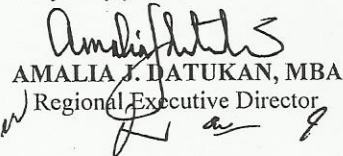 AMALIA J. DATUKAN, MBA
Regional Executive Director